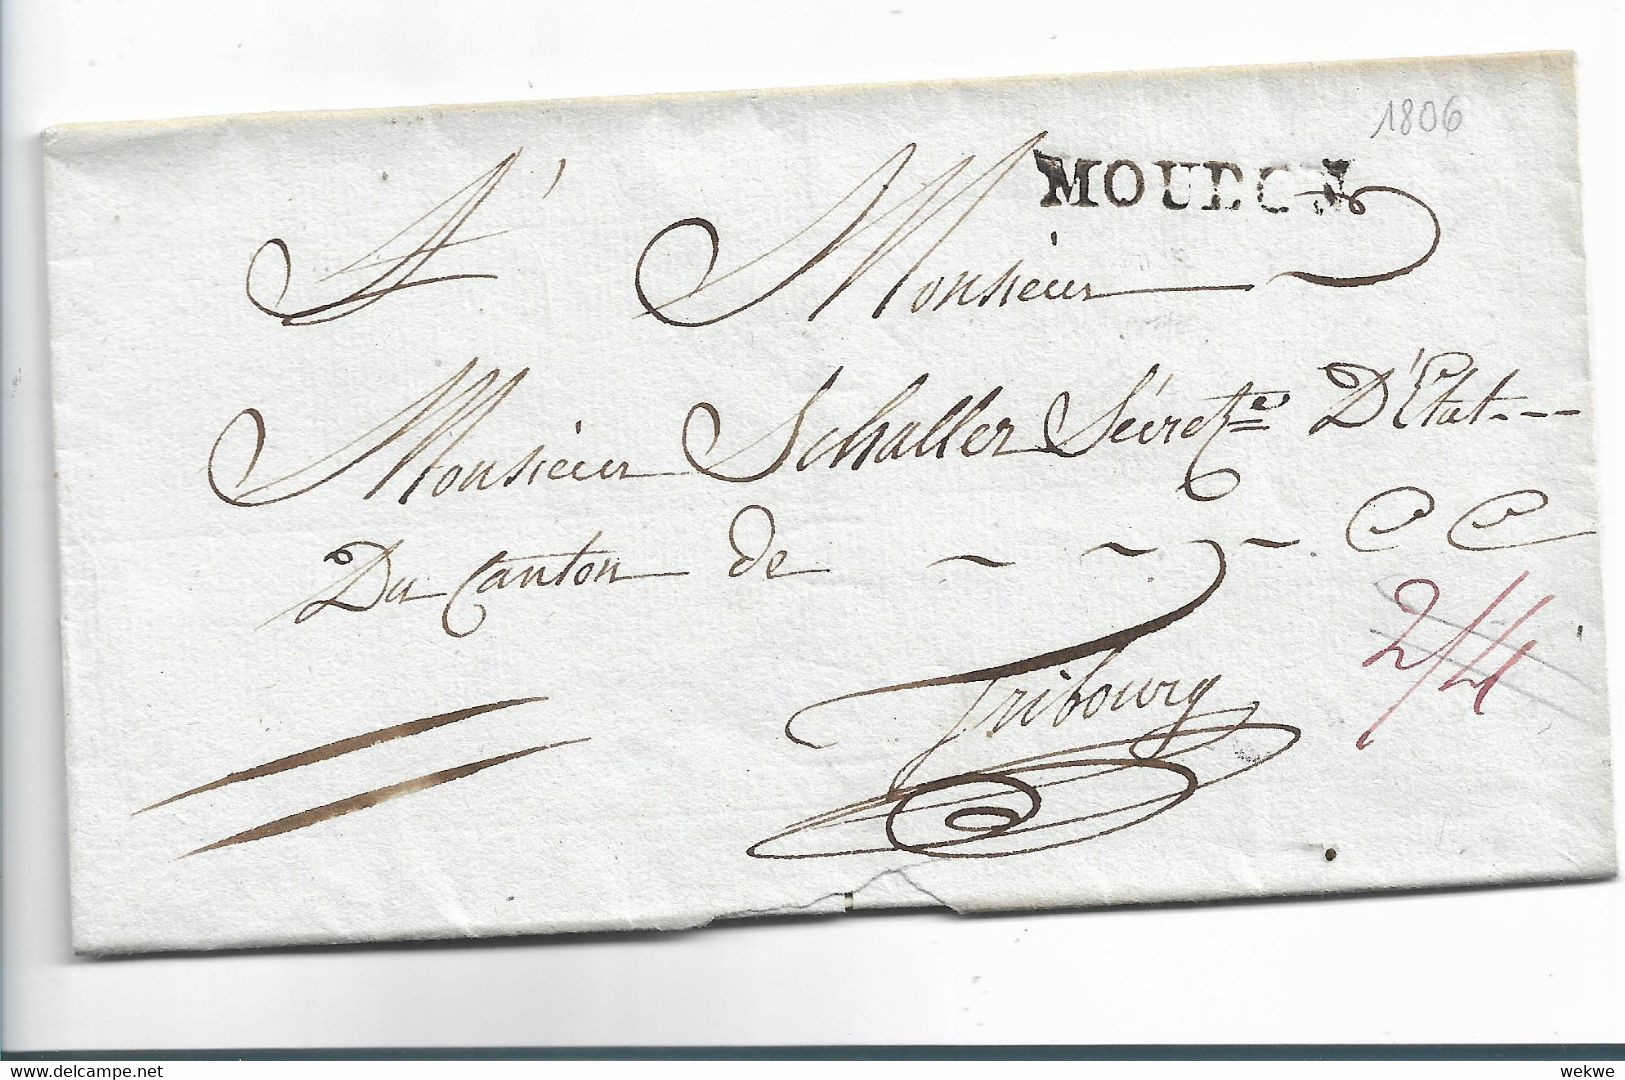 1806
MOUDON
A' Monsieur
Monsieur Schaller Sécret.re D'Etat---
Du Canton de
Fribourg
2/4
delcampe.net
wekwe